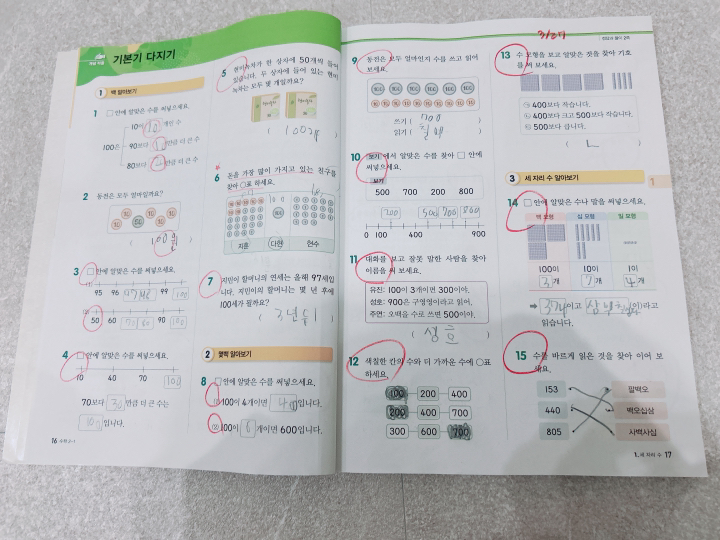 기본기 다지기
1 백 알아보기
1 □ 안에 알맞은 수를 써넣으세요.
100은
10이 10 개인 수
90보다 만큼 더 큰 수
80보다 만큼 더 큰 수
2 동전은 모두 얼마일까요?
10 10 10 10 10
3 □ 안에 알맞은 수를 써넣으세요.
95 96 99 100
50 60 90
4 □ 안에 알맞은 수를 써넣으세요.
10 40 70 100
70보다 30 만큼 더 큰 수는
입니다.
16 수학 2-1
5 현미녹차가 한 상자에 50개씩 들어
있습니다. 두 상자에 들어 있는 현미
녹차는 모두 몇 개일까요?
( 100개 )
6 돈을 가장 많이 가지고 있는 친구를
찾아 ○표 하세요.
100
지훈 다현 현수
7 지민이 할머니의 연세는 올해 97세입
니다. 지민이의 할머니는 몇 년 후에
100세가 될까요?
( 3년 후 )
2 몇백 알아보기
8 □ 안에 알맞은 수를 써넣으세요.
(1) 100이 4개이면 입니다.
(2) 100이 6 개이면 600입니다.
9 동전은 모두 얼마인지 수를 쓰고 읽어
보세요.
100 100 100 100 100 100 100
쓰기 ( 700 )
읽기 ( 칠백 )
10 보기 에서 알맞은 수를 찾아 □ 안에
써넣으세요.
보기
500 700 200 800
200 500 700 800
0 100 400 900
11 대화를 보고 잘못 말한 사람을 찾아
이름을 써 보세요.
유진: 100이 3개이면 300이야.
성호: 900은 구영영이라고 읽어.
주연: 오백을 수로 쓰면 500이야.
( 성호 )
12 색칠한 칸의 수와 더 가까운 수에 ○표
하세요.
100 200 400
200 400 700
300 600 700
3/27
13 수 모형을 보고 알맞은 것을 찾아 기호
를 써 보세요.
㉠ 400보다 작습니다.
㉡ 400보다 크고 500보다 작습니다.
㉢ 500보다 큽니다.
( ㄴ )
3 세 자리 수 알아보기
14 □ 안에 알맞은 수나 말을 써넣으세요.
백 모형 십 모형 일 모형
100이 10이 1이
3 개 7 개 4 개
➡ 374 이고 (이)라고
읽습니다.
15 수를 바르게 읽은 것을 찾아 이어 보
세요.
153 팔백오
440 백오십삼
805 사백사십
1. 세 자리 수 17
1